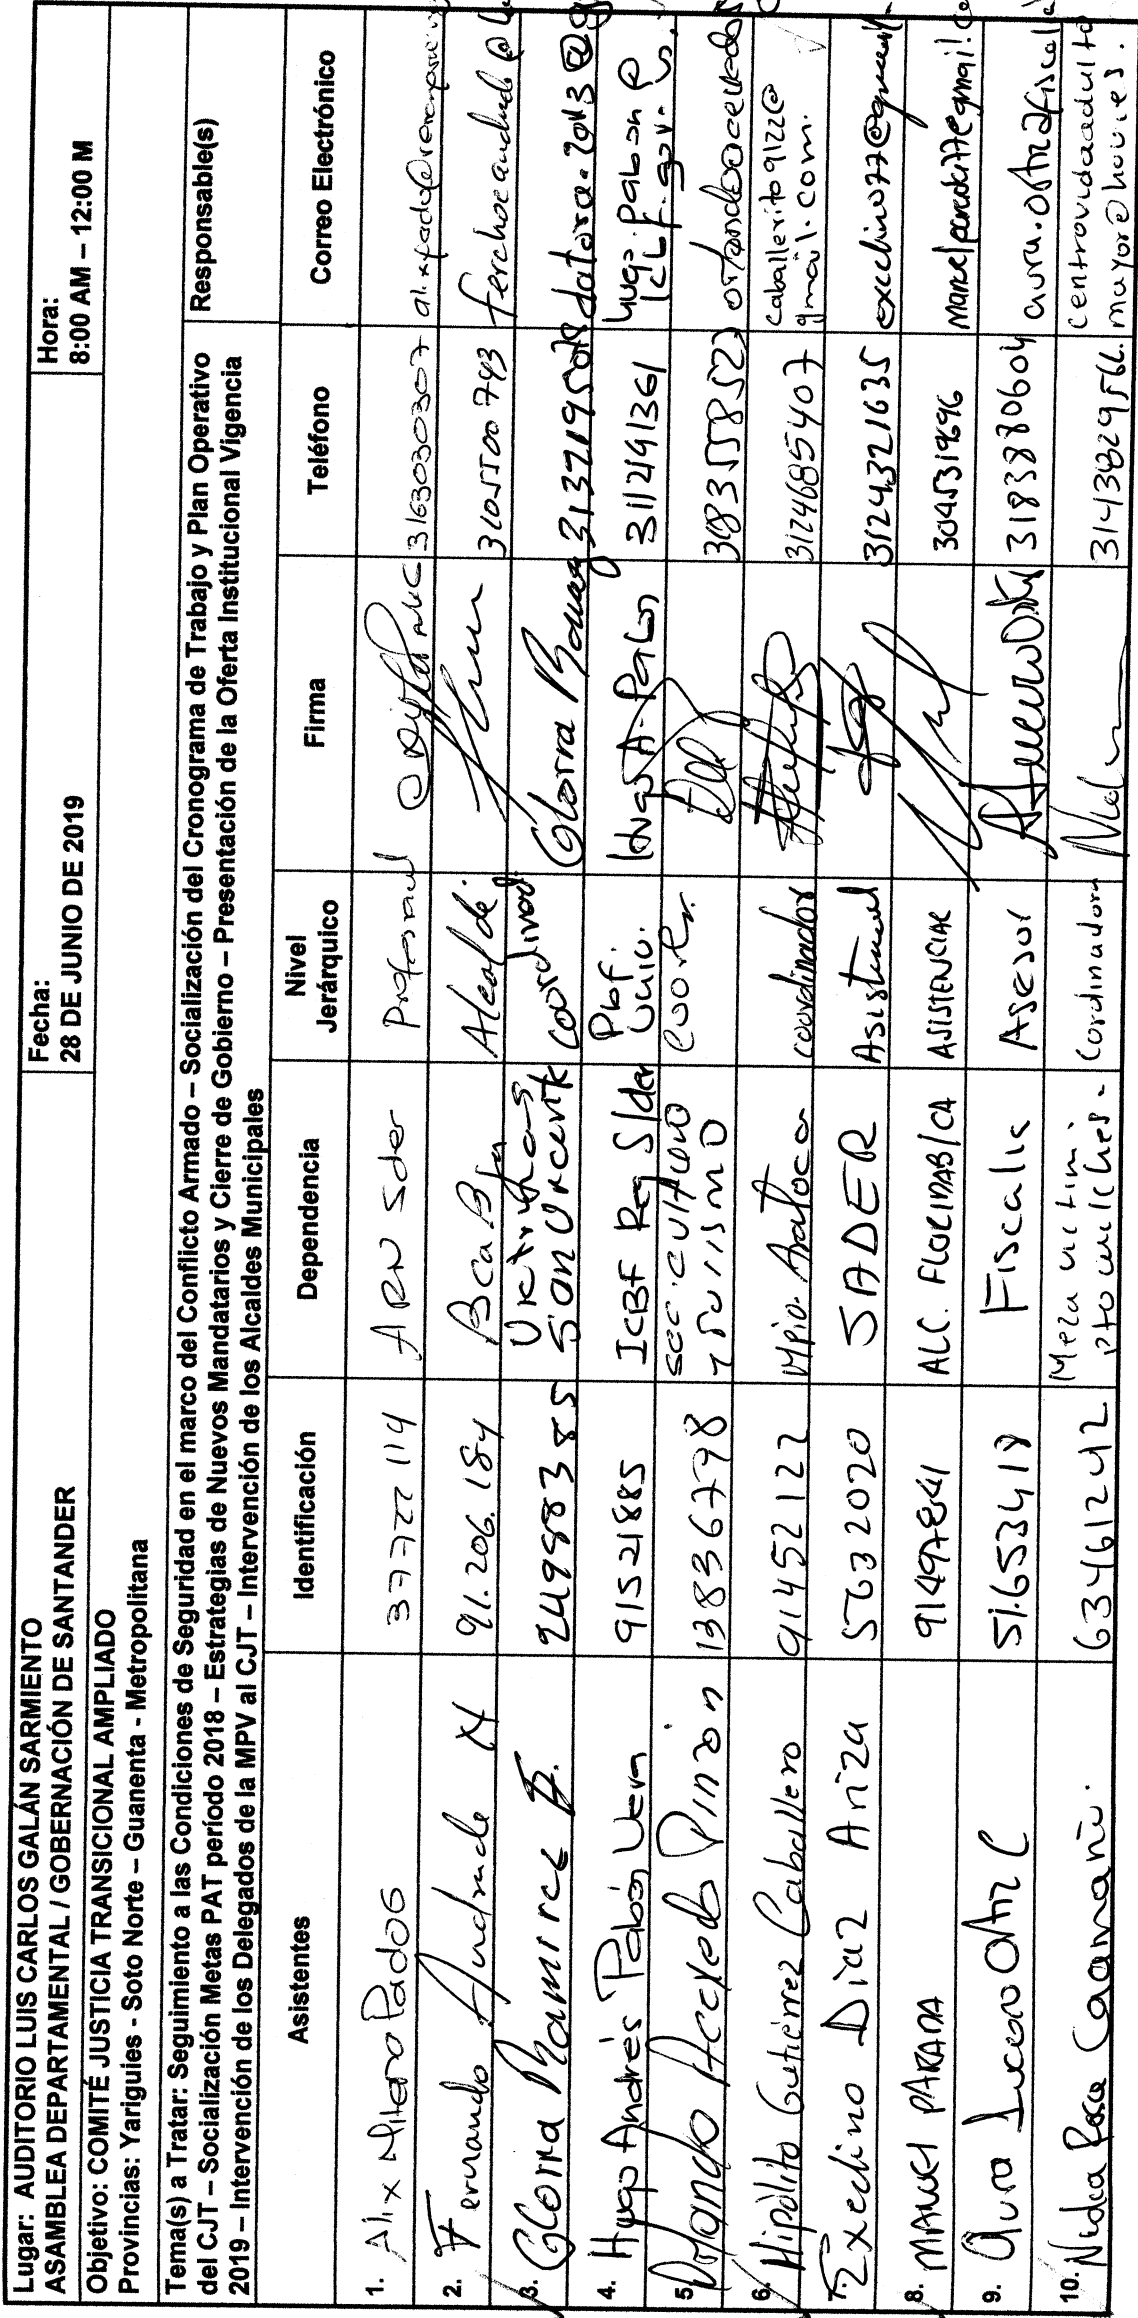 Lugar: AUDITORIO LUIS CARLOS GALÁN SARMIENTO
ASAMBLEA DEPARTAMENTAL / GOBERNACIÓN DE SANTANDER
Fecha:
28 DE JUNIO DE 2019
Hora:
8:00 AM – 12:00 M
Objetivo: COMITÉ JUSTICIA TRANSICIONAL AMPLIADO
Provincias: Yariguies - Soto Norte – Guanenta - Metropolitana
Tema(s) a Tratar: Seguimiento a las Condiciones de Seguridad en el marco del Conflicto Armado – Socialización del Cronograma de Trabajo y Plan Operativo
del CJT – Socialización Metas PAT período 2018 – Estrategias de Nuevos Mandatarios y Cierre de Gobierno – Presentación de la Oferta Institucional Vigencia
2019 – Intervención de los Delegados de la MPV al CJT – Intervención de los Alcaldes Municipales
Responsable(s)
Asistentes Identificación Dependencia Nivel Jerárquico Firma Teléfono Correo Electrónico
1. Alix Milena 37722114 ARN Sder Profesional 3163030307
2. Fernando Andrade 91.206.184 Bca.B/ja Alcalde 3105500743
3. Gloria Ramirez B. 24988385 Victimas San Vicente coordinad Gloria 3137195078 datora.2013@g
4. Hugo Andrés Pabón Vera 91521885 ICBF Reg S/der Prof. Univ. Hugo A. Pabón 3112191361 hugo.pabon@ icbf.gov.co.
5. Orlando Acevedo Pinzon 13836798 sec. cultura y turismo Coordin. 3183558523 orlandoacevedo
6. Hipólito Gutiérrez Caballero 91452122 Mpio. Aratoca coordinador 3124685407 caballerito9122@ gmail.com.
7. Exelino Diaz Ariza 5632020 SADER Asistencial 3124321635 exelino77@gmail
8. MANUEL PARADA 91497841 ALC. FLORIDABLCA ASISTENCIAL 3045319696 manuelparada77@gmail.co
9. Aura Lucero Ortiz C 51.653418 Fiscalia Asesor 3183880604 aura.ortiz@fiscalia
10. Nidia Rosa Caamaño. 63461242 Meza victim. pto wilches - Cordinadora 3143829566. centrovidaadulto mayor@